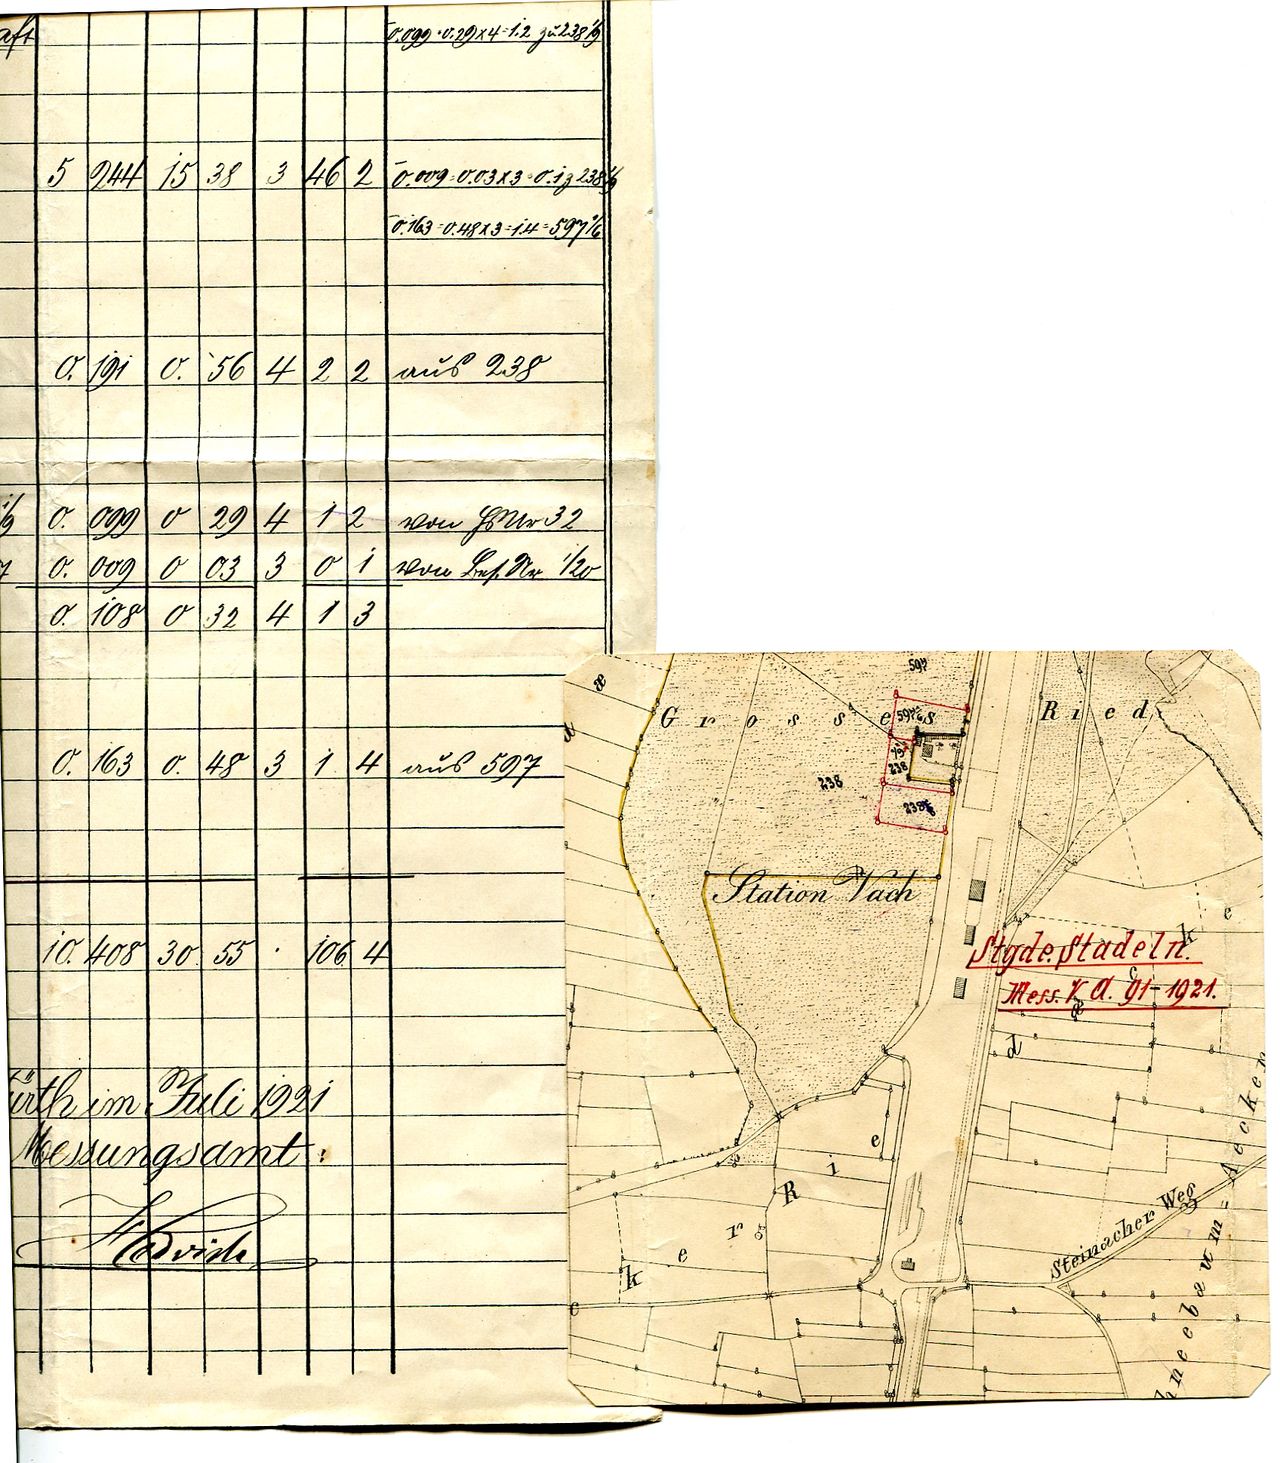 0.099 = 0.29 x 4 = 1.2 zu 238 1/9
5 244 15 38 3 46 2
0.009 = 0.03 x 3 = 0.1 z 238 1/9
0.163 = 0.48 x 3 = 1.4 = 597 1/6
0. 191 0. 56 4 2 2 aus 238
1/9 0. 099 0 29 4 1 2 von HsNr 32
0. 009 0 03 3 0 1 von Bes. Nr 1/20
0. 108 0 32 4 1 3
0. 163 0. 48 3 1 4 aus 597
10. 408 30. 55 . 106 4
ürth im Juli 1921
Messungsamt:
597
Grosses Ried
597 1/6
238
238
238
Station Vach
Stgde. Stadeln.
Mess. V. A. 91-1921.
Steinacher Weg
hneebaum=Aecker